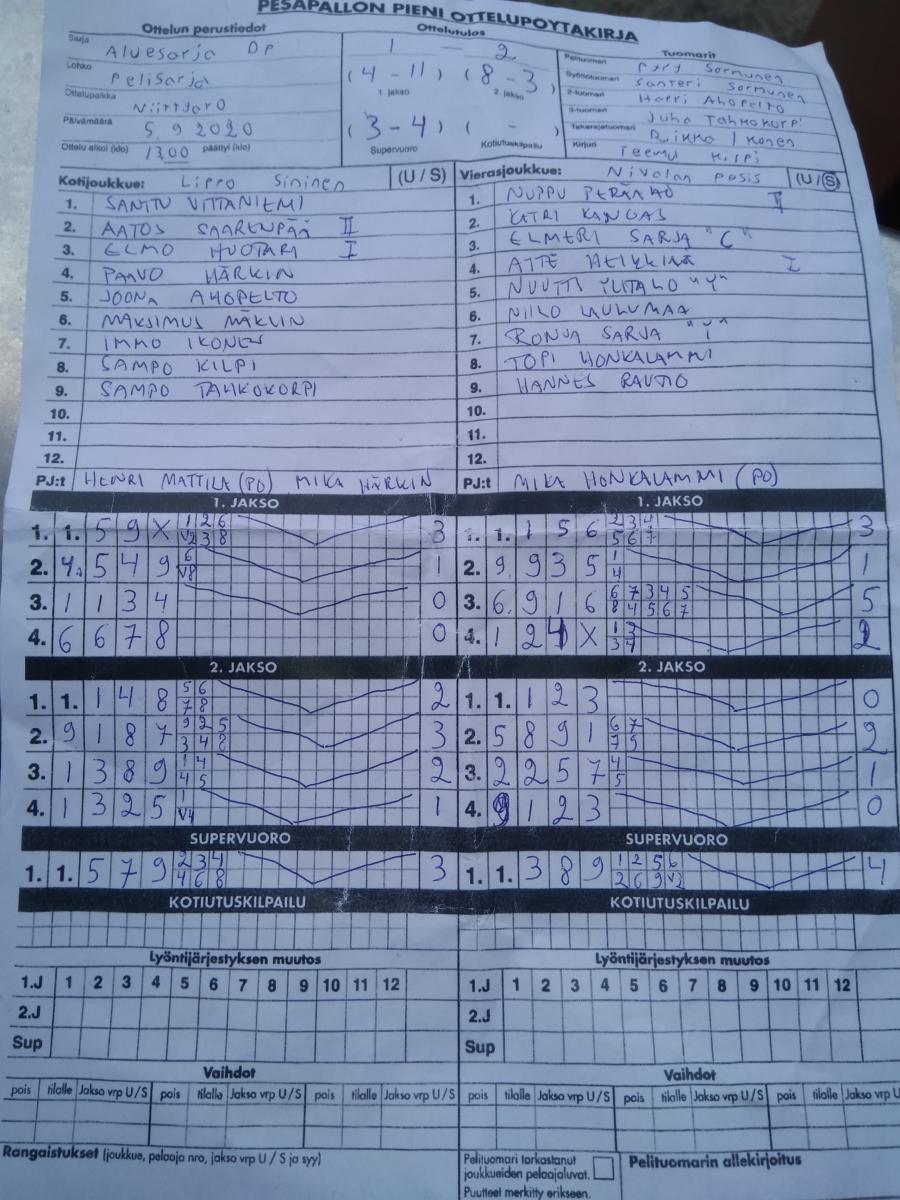 PESÄPALLON PIENI OTTELUPÖYTÄKIRJA
Ottelun perustiedot
Ottelutulos
Tuomarit
Sarja Aluesarja DP
Lohko Pelisarja
Ottelupaikka
Päivämäärä 5.9 2020
Ottelu alkoi (klo) 13.00 päättyi (klo)
1 — 2
(4 - 11) (8 - 3)
1. jakso 2. jakso
(3 - 4) ( - )
Supervuoro Kotiutuskilpailu
Pelituomari Sormunen
Syöttötuomari Santeri Sormunen
2-tuomari Harri Ahopelto
3-tuomari Juha Tahkokorpi
Takarajatuomari Riikka Ikonen
Kirjuri Teemu Kilpi
Kotijoukkue: Lippo Sininen (U / S)
1. SANTTU VITTANIEMI
2. AATOS SAARENPÄÄ II
3. ELMO HUOTARI I
4. PAAVO HÄRKIN
5. JOONA AHOPELTO
6. MAKSIMUS MÄKLIN
7. IMMO IKONEN
8. SAMPO KILPI
9. SAMPO TAHKOKORPI
10.
11.
12.
PJ:t HENRI MATTILA (PO) MIKA HÄRKIN
Vierasjoukkue: Nivalan pesis (U / S)
1. NUPPU PERÄAHO II
2. KATRI KANGAS
3. ELMERI SARJA "C"
4. ATTE HEIKKILÄ I
5. NUUTTI YLITALO "Y"
6. NIILO LAULUMAA
7. RONJA SARJA
8. TOPI HONKALAMMI
9. HANNES RAUTIO
10.
11.
12.
PJ:t MIKA HONKALAMMI (PO)
1. JAKSO
1. 1. 5 9 X 1 2 6 3
V2 3 8
2. 4. 5 4 9 6 1
V8
3. 1 1 3 4 0
4. 6 6 7 8 0
1. JAKSO
1. 1. 1 5 6 2 3 4 3
5 6 7
2. 9. 9 3 5 1 1
4
3. 6. 9 1 6 6 7 3 4 5 5
8 4 5 6 7
4. 1 2 4 X 1 3 2
3 4
2. JAKSO
1. 1. 1 4 8 5 6 2
7 8
2. 9 1 8 7 9 2 5 3
3 4 8
3. 1 3 8 9 1 4 2
4 5
4. 1 3 2 5 1 1
V4
2. JAKSO
1. 1. 1 2 3 0
2. 5 8 9 1 6 7 2
7 5
3. 2 2 5 7 4 1
5
4. 9 1 2 3 0
SUPERVUORO
1. 1. 5 7 9 2 3 4 3
4 6 8
SUPERVUORO
1. 1. 3 8 9 1 2 5 6 4
2 6 9 V2
KOTIUTUSKILPAILU
KOTIUTUSKILPAILU
Lyöntijärjestyksen muutos
1.J 1 2 3 4 5 6 7 8 9 10 11 12
2.J
Sup
Lyöntijärjestyksen muutos
1.J 1 2 3 4 5 6 7 8 9 10 11 12
2.J
Sup
Vaihdot
pois tilalle Jakso vrp U / S pois tilalle Jakso vrp U / S pois tilalle Jakso vrp U / S
Vaihdot
pois tilalle Jakso vrp U / S pois tilalle Jakso vrp U / S pois tilalle Jakso vrp U
Rangaistukset (joukkue, pelaaja nro, jakso vrp U / S ja syy)
Pelituomari tarkastanut
joukkueiden pelaajaluvat.
Puutteet merkitty erikseen.
Pelituomarin allekirjoitus